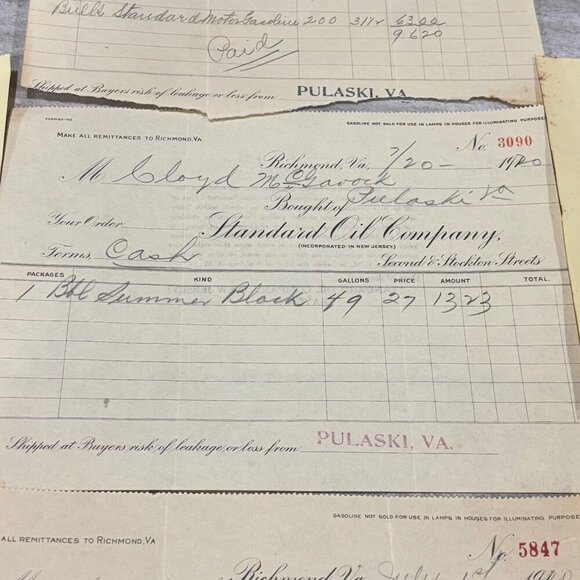 Bulk Standard Motor Gasoline 200 31½ 63 00
96 20
Paid
Shipped at Buyers risk of leakage or loss from PULASKI, VA.
GASOLINE NOT SOLD FOR USE IN LAMPS IN HOUSES FOR ILLUMINATING PURPOSE
MAKE ALL REMITTANCES TO RICHMOND, VA.
No. 3090
Richmond, Va, 7/20- 1920
M Cloyd McGavock
Bought of Pulaski Va
Your Order Standard Oil Company,
(INCORPORATED IN NEW JERSEY)
Terms, Cash Second & Stockton Streets
PACKAGES KIND GALLONS PRICE AMOUNT TOTAL
1 Bbl Summer Black 49 27 13 23
Shipped at Buyers risk of leakage or loss from PULASKI, VA.
GASOLINE NOT SOLD FOR USE IN LAMPS IN HOUSES FOR ILLUMINATING PURPOSE
ALL REMITTANCES TO RICHMOND, VA
No. 5847
Richmond, Va, July 1st 1920